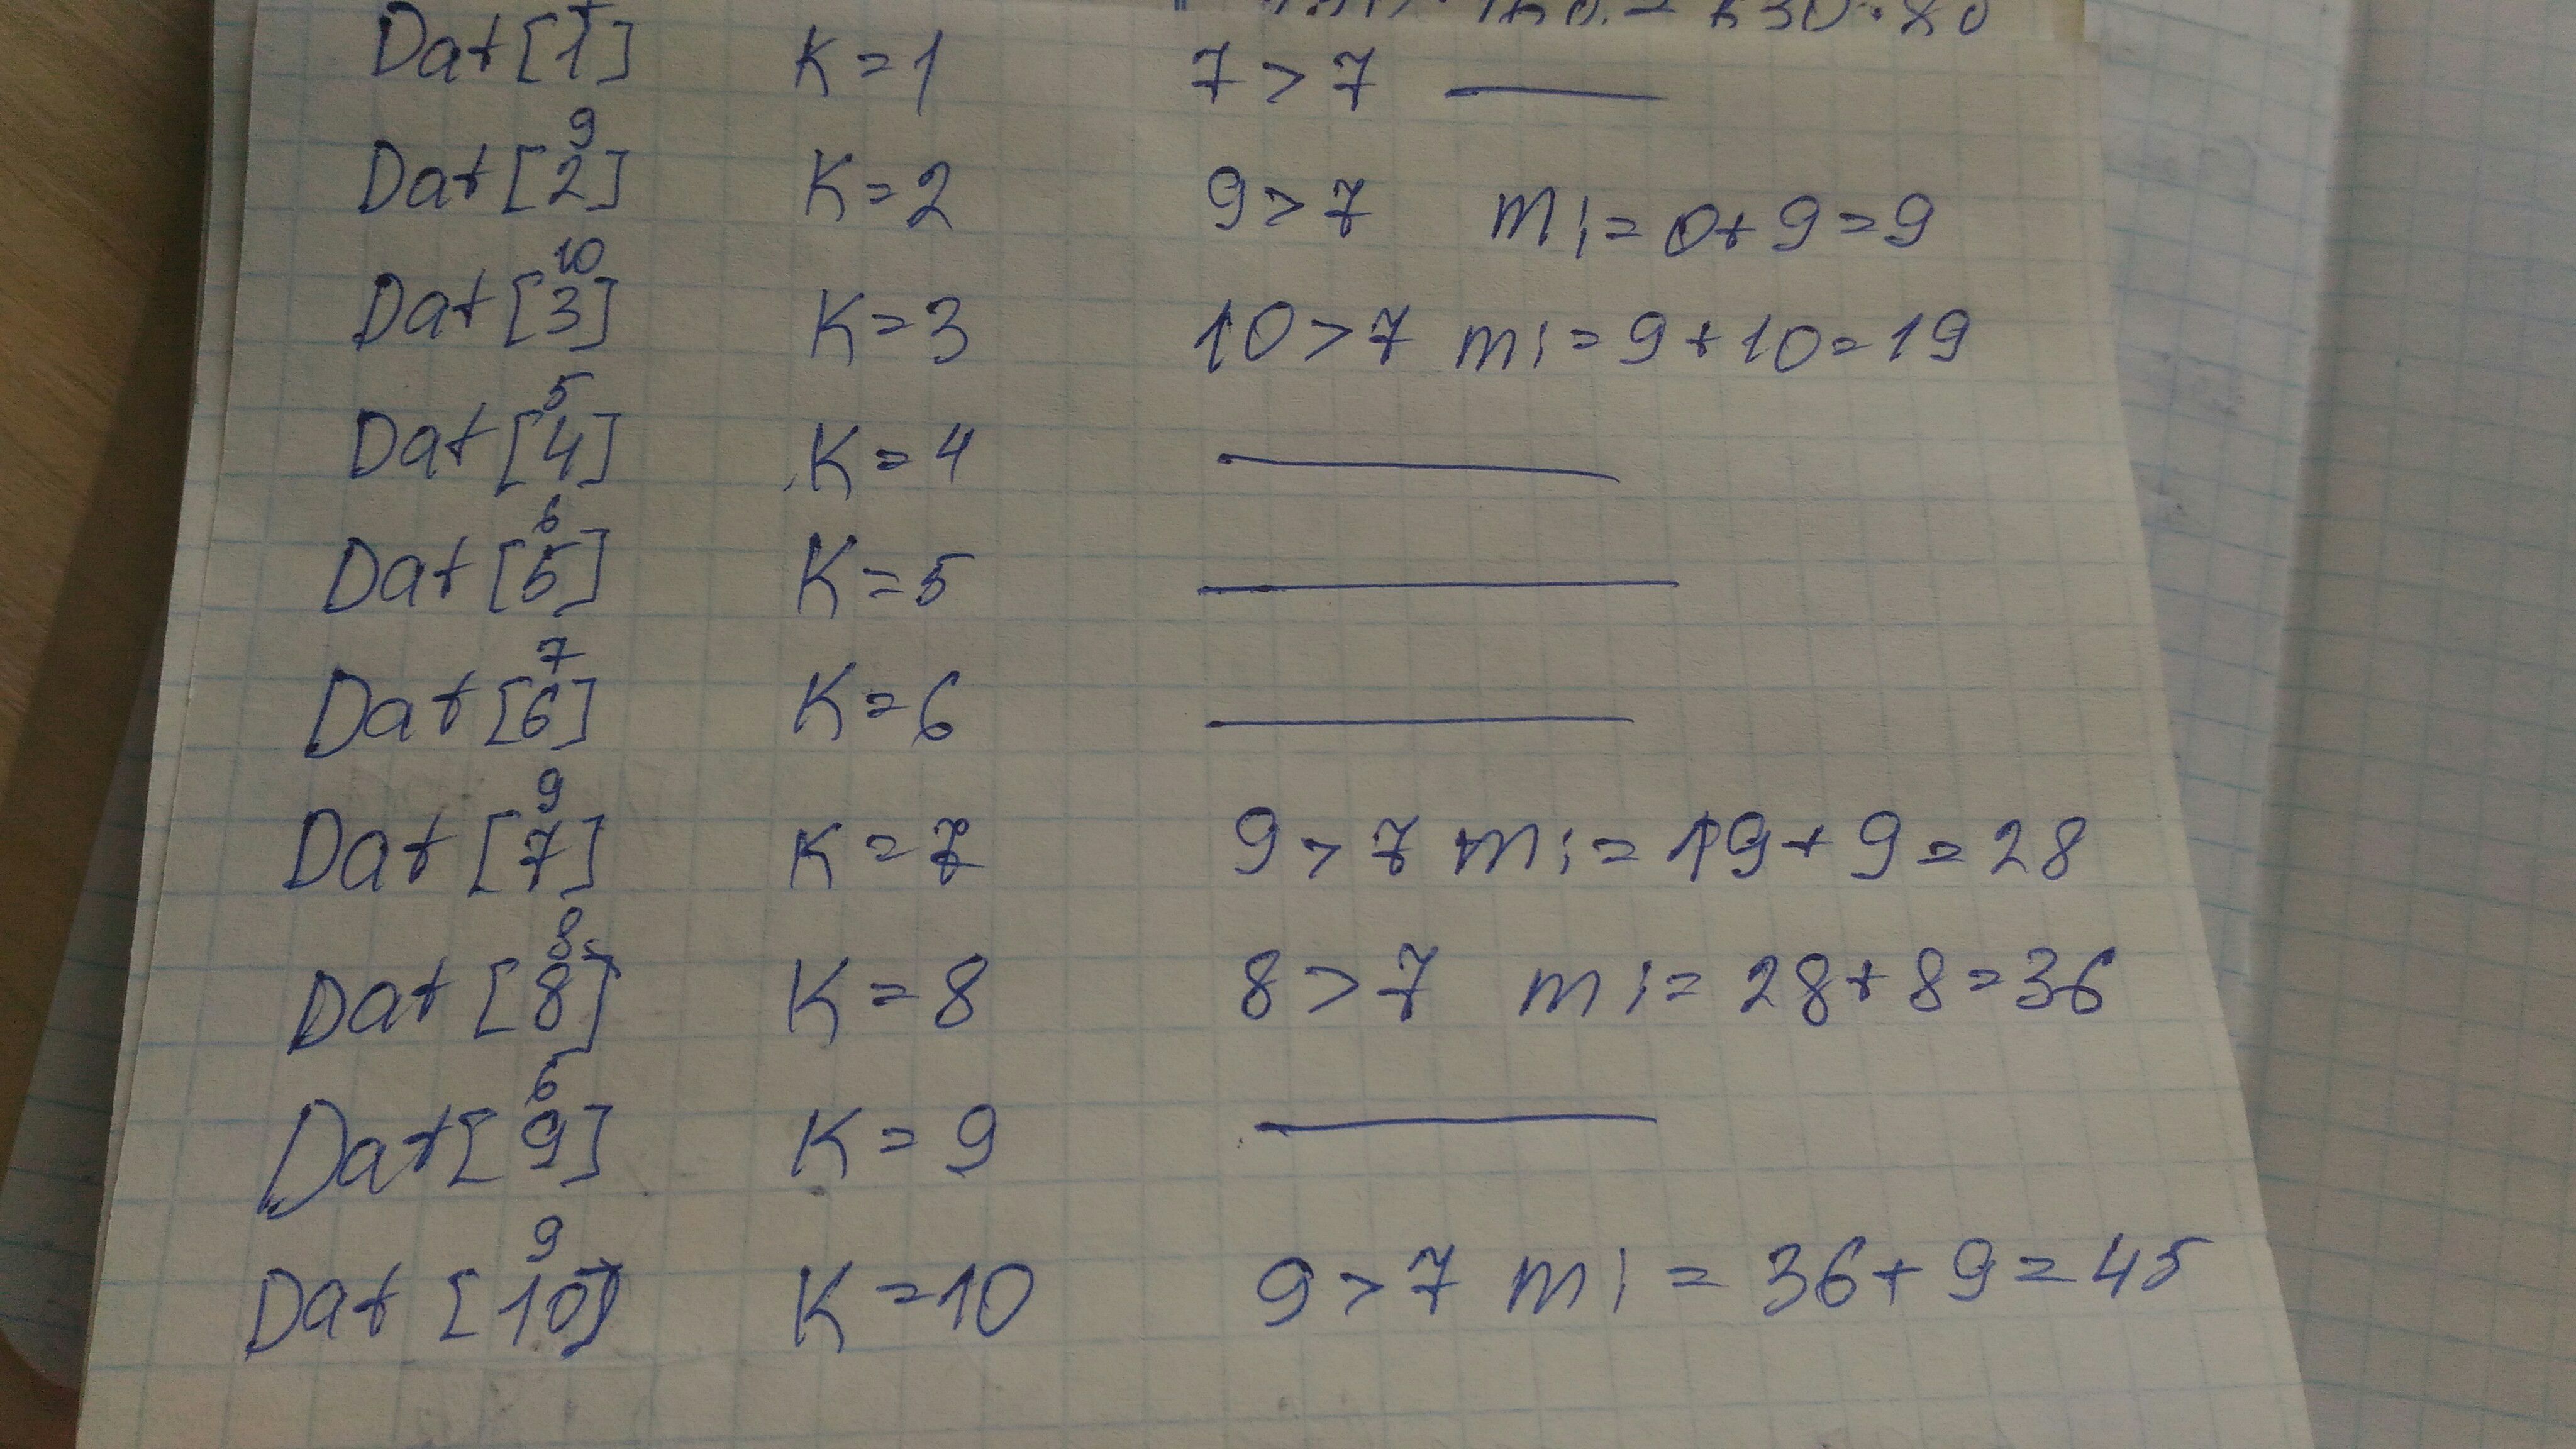 7
Dat[1] K=1 7>7 —
9
Dat[2] K=2 9>7 m;=0+9=9
10
Dat[3] K=3 10>7 m;=9+10=19
5
Dat[4] K=4 —
6
Dat[5] K=5 —
7
Dat[6] K=6 —
9
Dat[7] K=7 9>7 m;=19+9=28
8
Dat[8] K=8 8>7 m;=28+8=36
6
Dat[9] K=9 —
9
Dat[10] K=10 9>7 m;=36+9=45